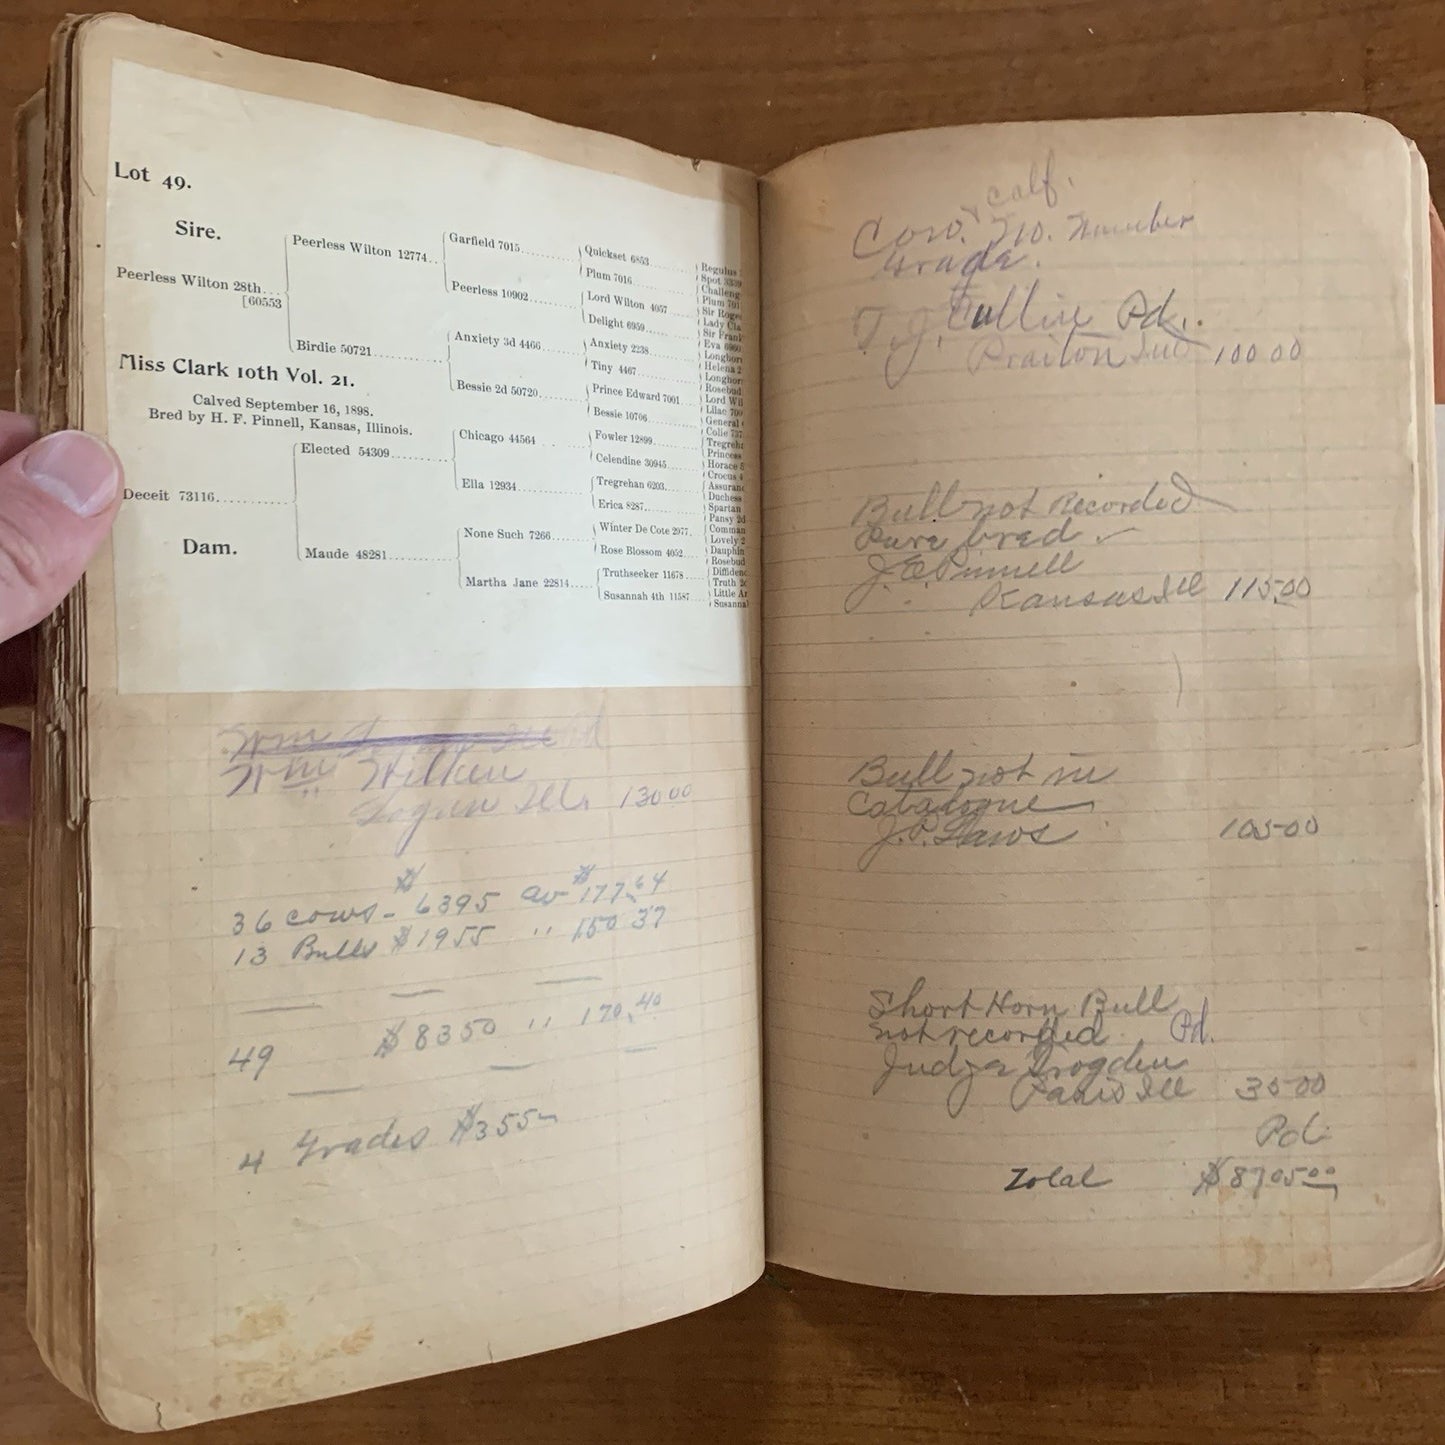 Lot 49.
Sire.
Peerless Wilton 28th
[60553
Peerless Wilton 12774
Birdie 50721
Garfield 7015
Peerless 10902
Anxiety 3d 4466
Bessie 2d 50720
Quickset 6853
Plum 7016
Lord Wilton 4057
Delight 6959
Anxiety 2238
Tiny 4467
Prince Edward 7001
Bessie 10706
Regulus
Spot 3339
Challeng
Plum 701
Sir Roge
Lady Cla
Sir Frank
Eva 6960
Longhor
Helena 2
Longhor
Rosebud
Lord Wil
Lilac 700
General
Colie 737
Miss Clark 10th Vol. 21.
Calved September 16, 1898.
Bred by H. F. Pinnell, Kansas, Illinois.
Deceit 73116
Dam.
Elected 54309
Maude 48281
Chicago 44564
Ella 12934
None Such 7266
Martha Jane 22814
Fowler 12899
Celendine 30945
Tregrehan 6203
Erica 8287
Winter De Cote 2977
Rose Blossom 4052
Truthseeker 11678
Susannah 4th 11587
Tregreha
Princess
Horace
Crocus 4
Assuranc
Duchess
Spartan
Pansy 2d
Comman
Lovely 2
Dauphin
Rosebud
Diffidenc
Truth 2d
Little Ar
Susanna
Wm
Wm Wilken
Logan Ill. 130 00
36 cows - $6395 av $177.64
13 Bulls $1955 " 150 37
49 $8350 " 170.40
4 Grades $355
& calf.
Cow. No. Number
Grade.
T. J. Pd.
100 00
Bull not Recorded
Pure bred
J. E. Pinnell
Kansas Ill 115.00
Bull not in
Catalogue
J. P. Laws 105 00
Short Horn Bull
not recorded Pd.
Judge Trogden
Paris Ill 35 00
Pd.
Total $8705.00